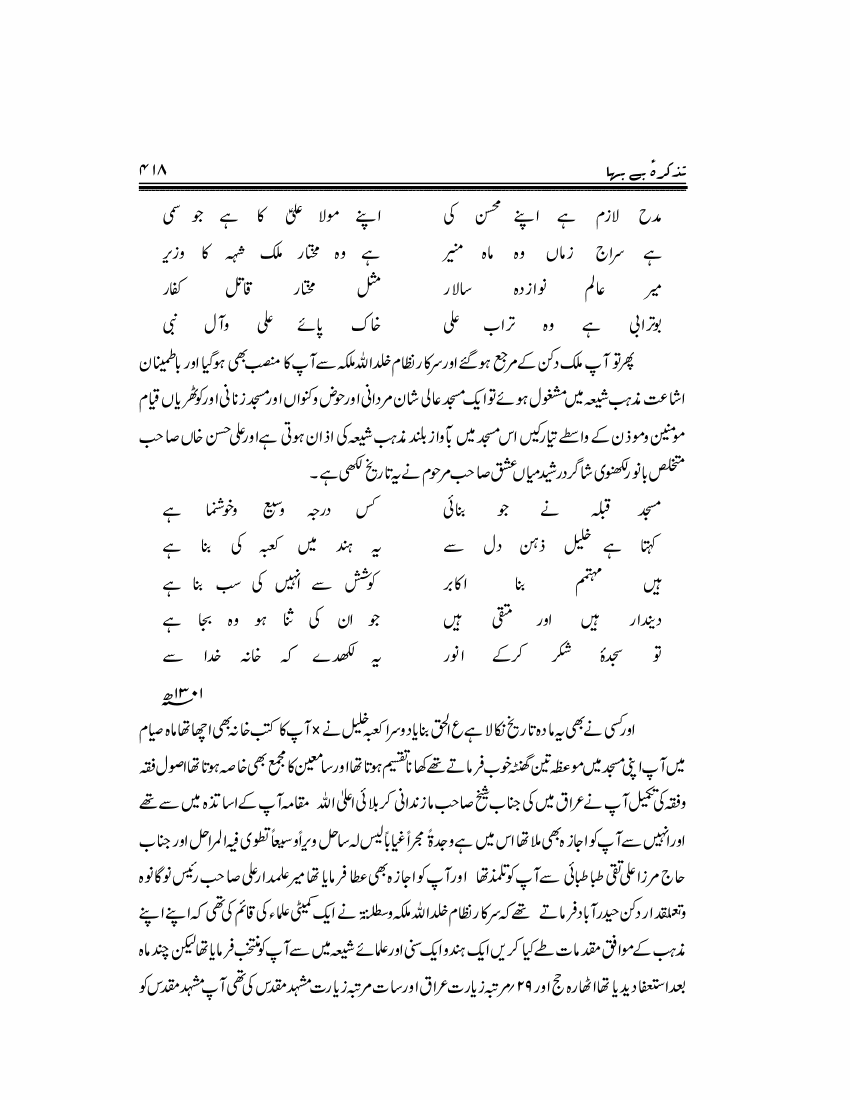 تذکرۂ بے بہا ۴۱۸
مدح لازم ہے اپنے محسن کی اپنے مولا علیؑ کا ہے جو سمی
ہے سراج زماں وہ ماہ منیر ہے وہ مختار ملک شہہ کا وزیر
میر عالم نوازدہ سالار مثل مختار قاتل کفار
بوترابی ہے وہ تراب علی خاک پائے علی وآل نبی
پھر تو آپ ملک دکن کے مرجع ہوگئے اور سرکار نظام خلد اللہ ملکہ سے آپ کا منصب بھی ہوگیا اور باطمینان
اشاعت مذہب شیعہ میں مشغول ہوئے تو ایک مسجد عالی شان مردانی اور حوض وکنواں اور مسجد زنانی اور کوٹھریاں قیام
مومنین وموذن کے واسطے تیار کیں اس مسجد میں بآواز بلند مذہب شیعہ کی اذان ہوتی ہے اور علی حسن خاں صاحب
متخلص بانور لکھنوی شاگرد رشید میاں عشق صاحب مرحوم نے یہ تاریخ لکھی ہے ۔
مسجد قبلہ نے جو بنائی کس درجہ وسیع وخوشنما ہے
کہتا ہے خلیل ذہن دل سے یہ ہند میں کعبہ کی بنا ہے
ہیں مہتمم بنا اکابر کوشش سے انہیں کی سب بنا ہے
دیندار ہیں اور متقی ہیں جو ان کی ثنا ہو وہ بجا ہے
تو سجدۂ شکر کرکے انور یہ لکھدے کہ خانہ خدا سے
۱۳۰۱ھ
اور کسی نے بھی یہ مادہ تاریخ نکالا ہے ع الحق بنایا دوسرا کعبہ خلیل نے × آپ کا کتب خانہ بھی اچھا تھا ماہ صیام
میں آپ اپنی مسجد میں موعظہ تین گھنٹہ خوب فرماتے تھے کھانا تقسیم ہوتا تھا اور سامعین کا مجمع بھی خاصہ ہوتا تھا اصول فقہ
وفقہ کی تکمیل آپ نے عراق میں کی جناب شیخ صاحب مازندانی کربلائی اعلیٰ اللہ مقامہ آپ کے اساتذہ میں سے تھے
اور انہیں سے آپ کو اجازہ بھی ملا تھا اس میں ہے وجدۃ مجراً غیاباً لیس لہ ساحل وبراً وسیعاً تطوی فیہ المراحل اور جناب
حاج مرزا علی نقی طباطبائی سے آپ کو تلمذ تھا اور آپ کو اجازہ بھی عطا فرمایا تھا میر علمدار علی صاحب رئیس نوگانوہ
وتعلقدار دکن حیدرآباد فرماتے تھے کہ سرکار نظام خلد اللہ ملکہ وسطلنۃ نے ایک کمیٹی علماء کی قائم کی تھی کہ اپنے اپنے
مذہب کے موافق مقدمات طے کیا کریں ایک ہندو ایک سنی اور علمائے شیعہ میں سے آپ کو منتخب فرمایا تھا لیکن چند ماہ
بعد استعفا دیدیا تھا اٹھارہ حج اور ۲۹/ مرتبہ زیارت عراق اور سات مرتبہ زیارت مشہد مقدس کی تھی آپ مشہد مقدس کو